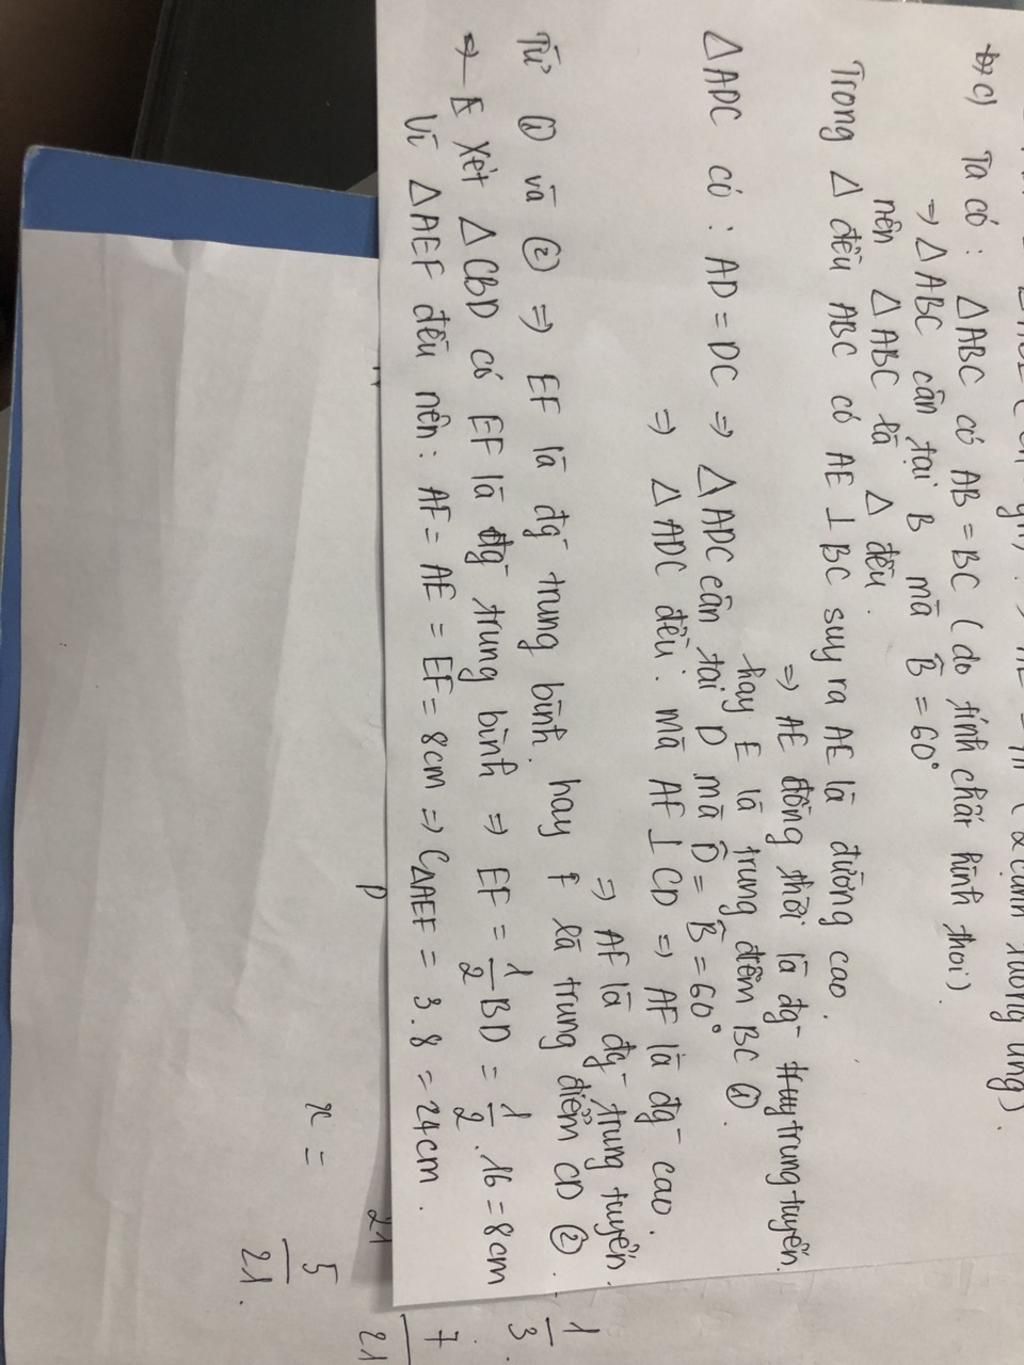 c) Ta có : △ABC có AB = BC (do tính chất hình thoi).
⇒ △ABC cân tại B mà B̂ = 60°
nên △ABC là △ đều.
Trong △ đều ABC có AE ⊥ BC suy ra AE là đường cao.
⇒ AE đồng thời là đg- trung tuyến.
hay E là trung đểm BC ①.
△ADC có : AD = DC ⇒ △ADC cân tại D mà D̂ = B̂ = 60°
⇒ △ADC đều. mà AF ⊥ CD ⇒ AF là đg- cao.
⇒ AF là đg- trung tuyến.
hay F là trung điểm CD ②.
Từ ① và ② ⇒ EF là đg- trung bình.
Xét △CBD có EF là đg- trung bình ⇒ EF = 1/2 BD = 1/2 . 16 = 8cm
Vì △AEF đều nên : AF = AE = EF = 8cm ⇒ C△AEF = 3.8 = 24cm.
1/3.
7/21
21
x = 5/21.